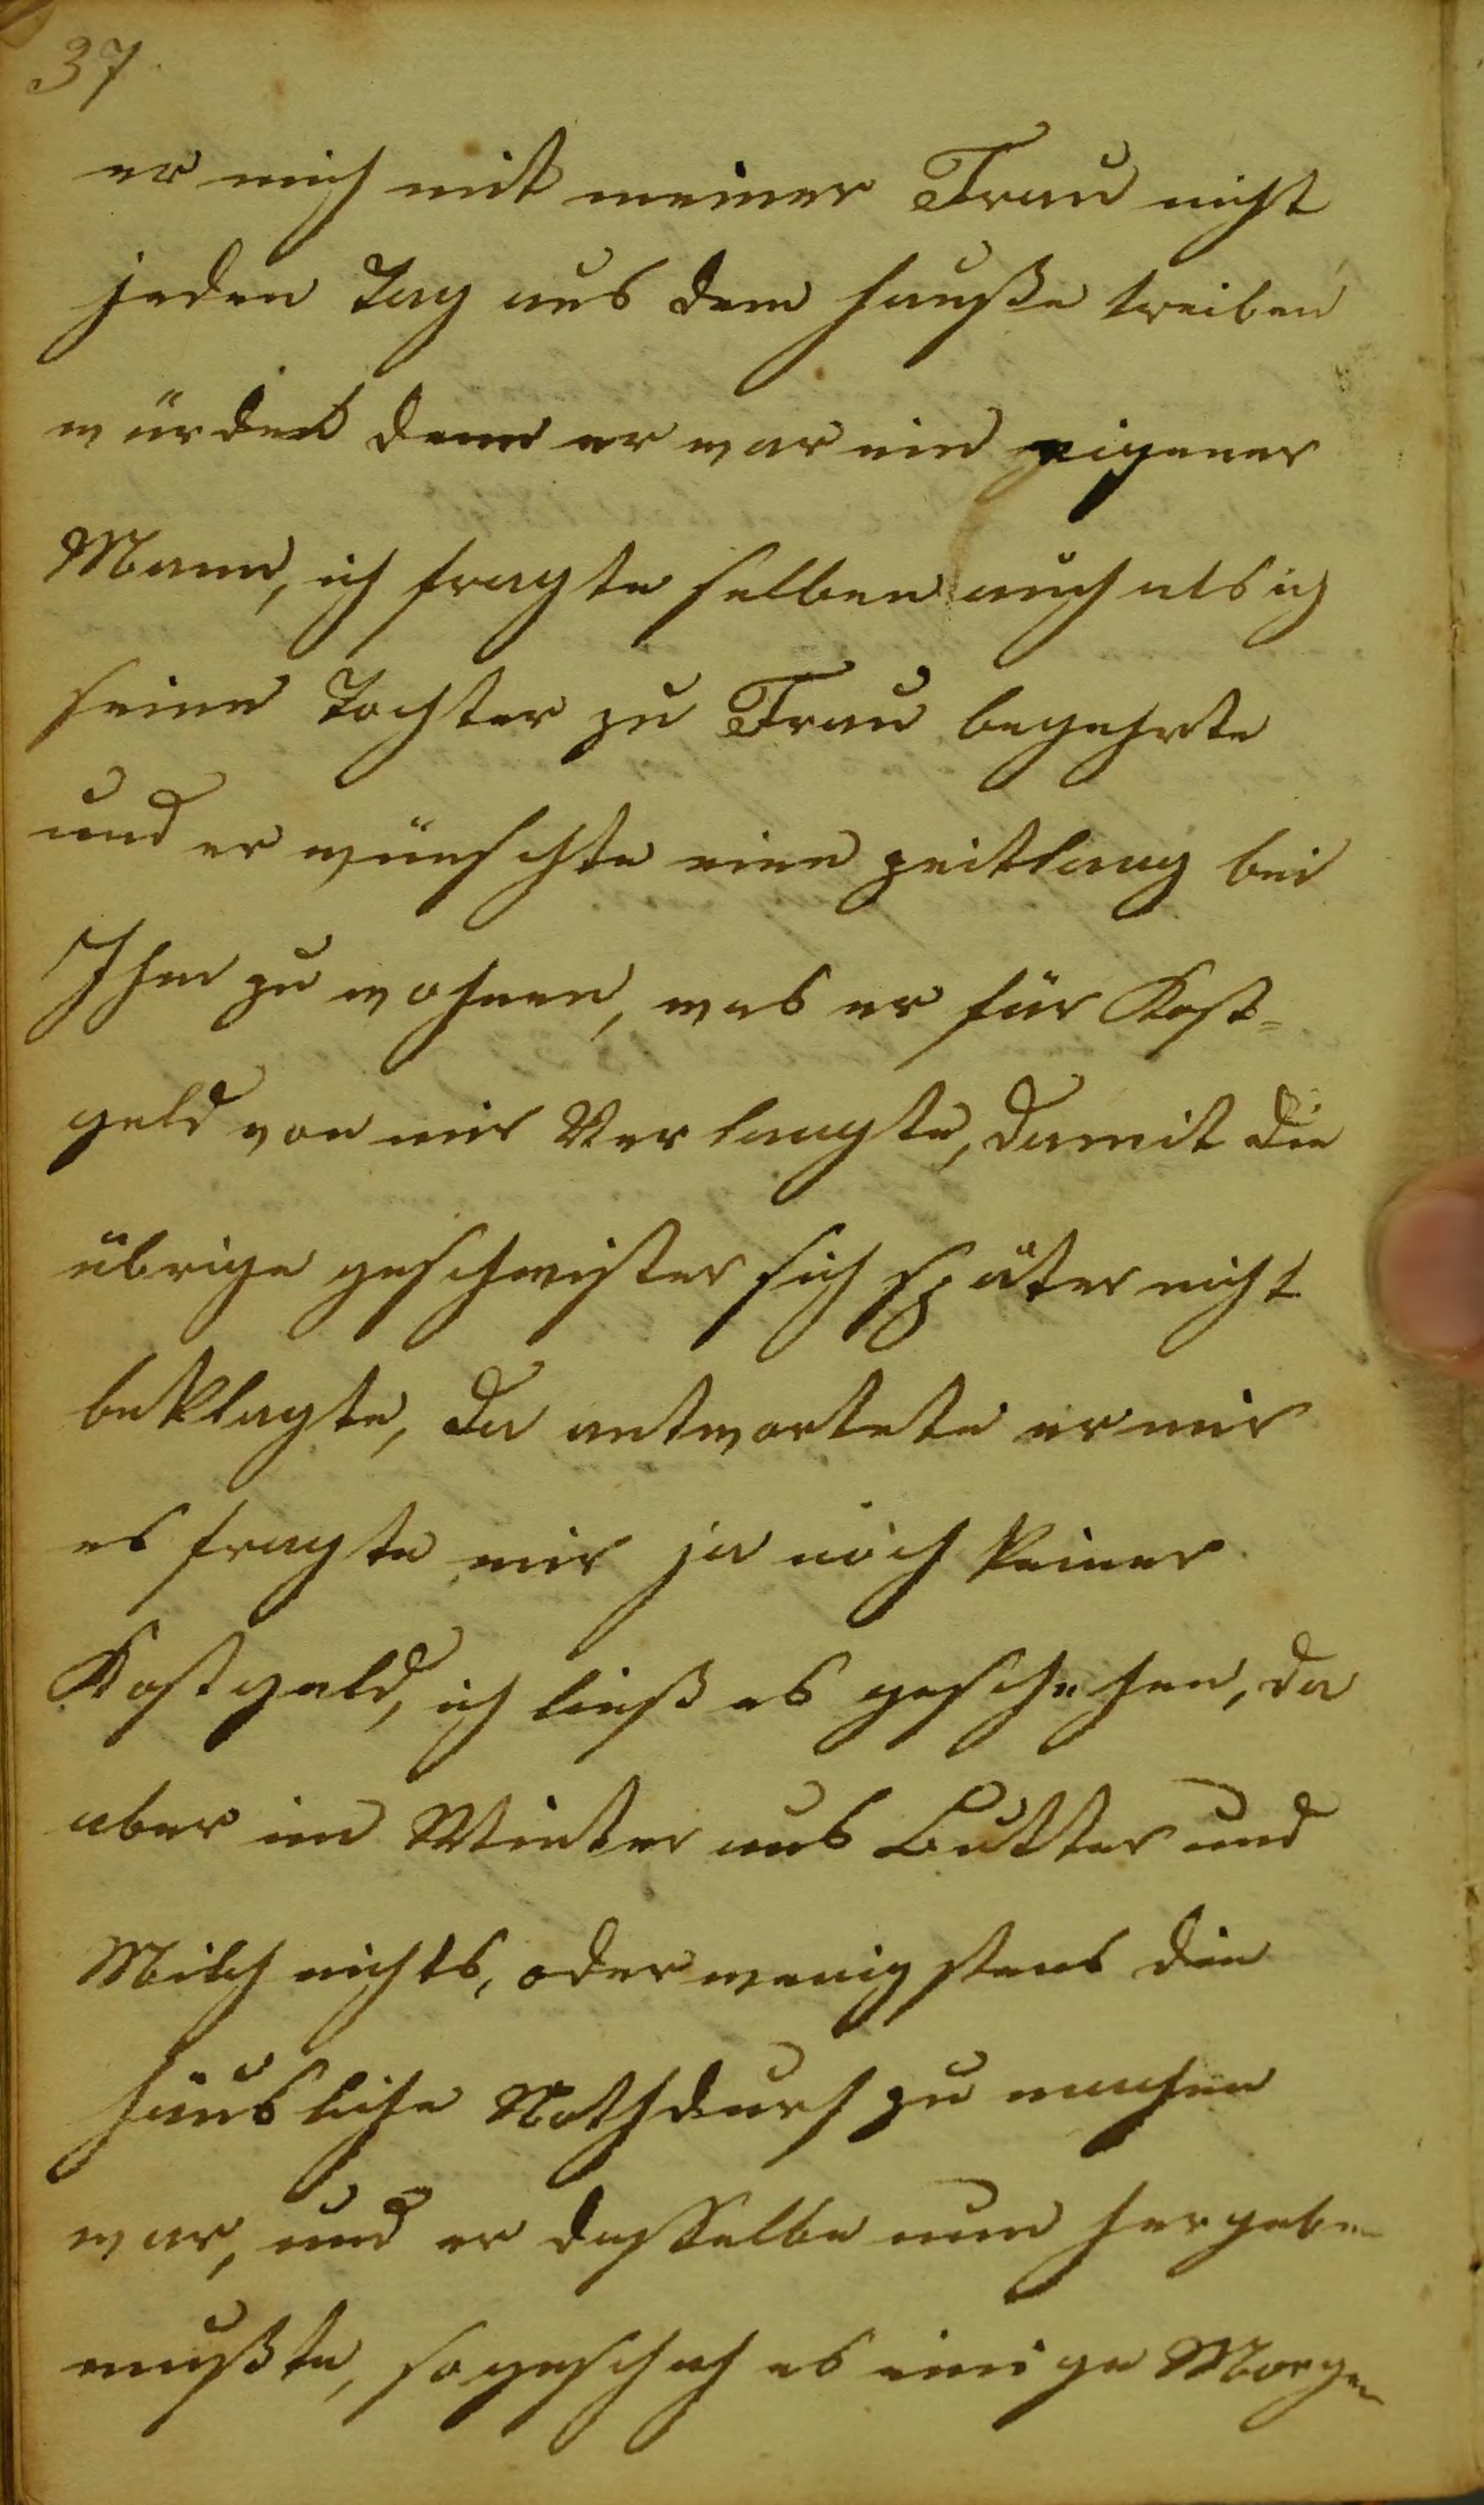 37
er mich mit meiner Frau nicht
jeden Tag aus dem hauße treiben
würde denn er war ein eigener
Mann, ich fragte selben auch als ich
seine Tochter zu Frau begehrte
und er wünschte eine zeitlang bei
Ihm zu wohnen, was er für Kost-
geld von mir Verlangte, damit die
übrige geschwister sich später nicht
beklagte, da antwortete er mir
es fragte mir ja noch keiner
Kostgeld, ich ließ es geschehen, da
aber im Winter aus Butter und
Milch nichts, oder wenigstens die
häusliche Nothdurf zu machen
war, und er dasselbe nun hergeben
mußte, so geschah es einige Morgen